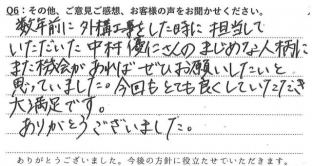 Q6：その他、ご意見ご感想、お客様の声をお聞かせください。
数年前に外構工事をした時に担当して
いただいた中村優仁さんのまじめな人柄に
また機会があればぜひお願いしたいと
思っていました。今回もとても良くしていただき
大満足です。
ありがとうございました。
ありがとうございました。今後の方針に役立たせていただきます。